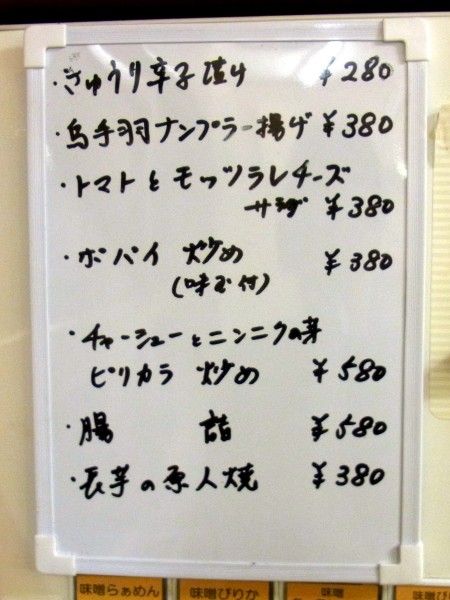 ・きゅうり辛子漬け ¥280
・鳥手羽ナンプラー揚げ ¥380
・トマトとモッツラレチーズ
サラダ ¥380
・ポパイ 炒め ¥380
(味玉付)
・チャーシューとニンニクの芽
ピリカラ 炒め ¥580
・腸 詰 ¥580
・長芋の原人焼 ¥380
味噌らぁめん
味噌ぴりか
味噌
味噌ぴ